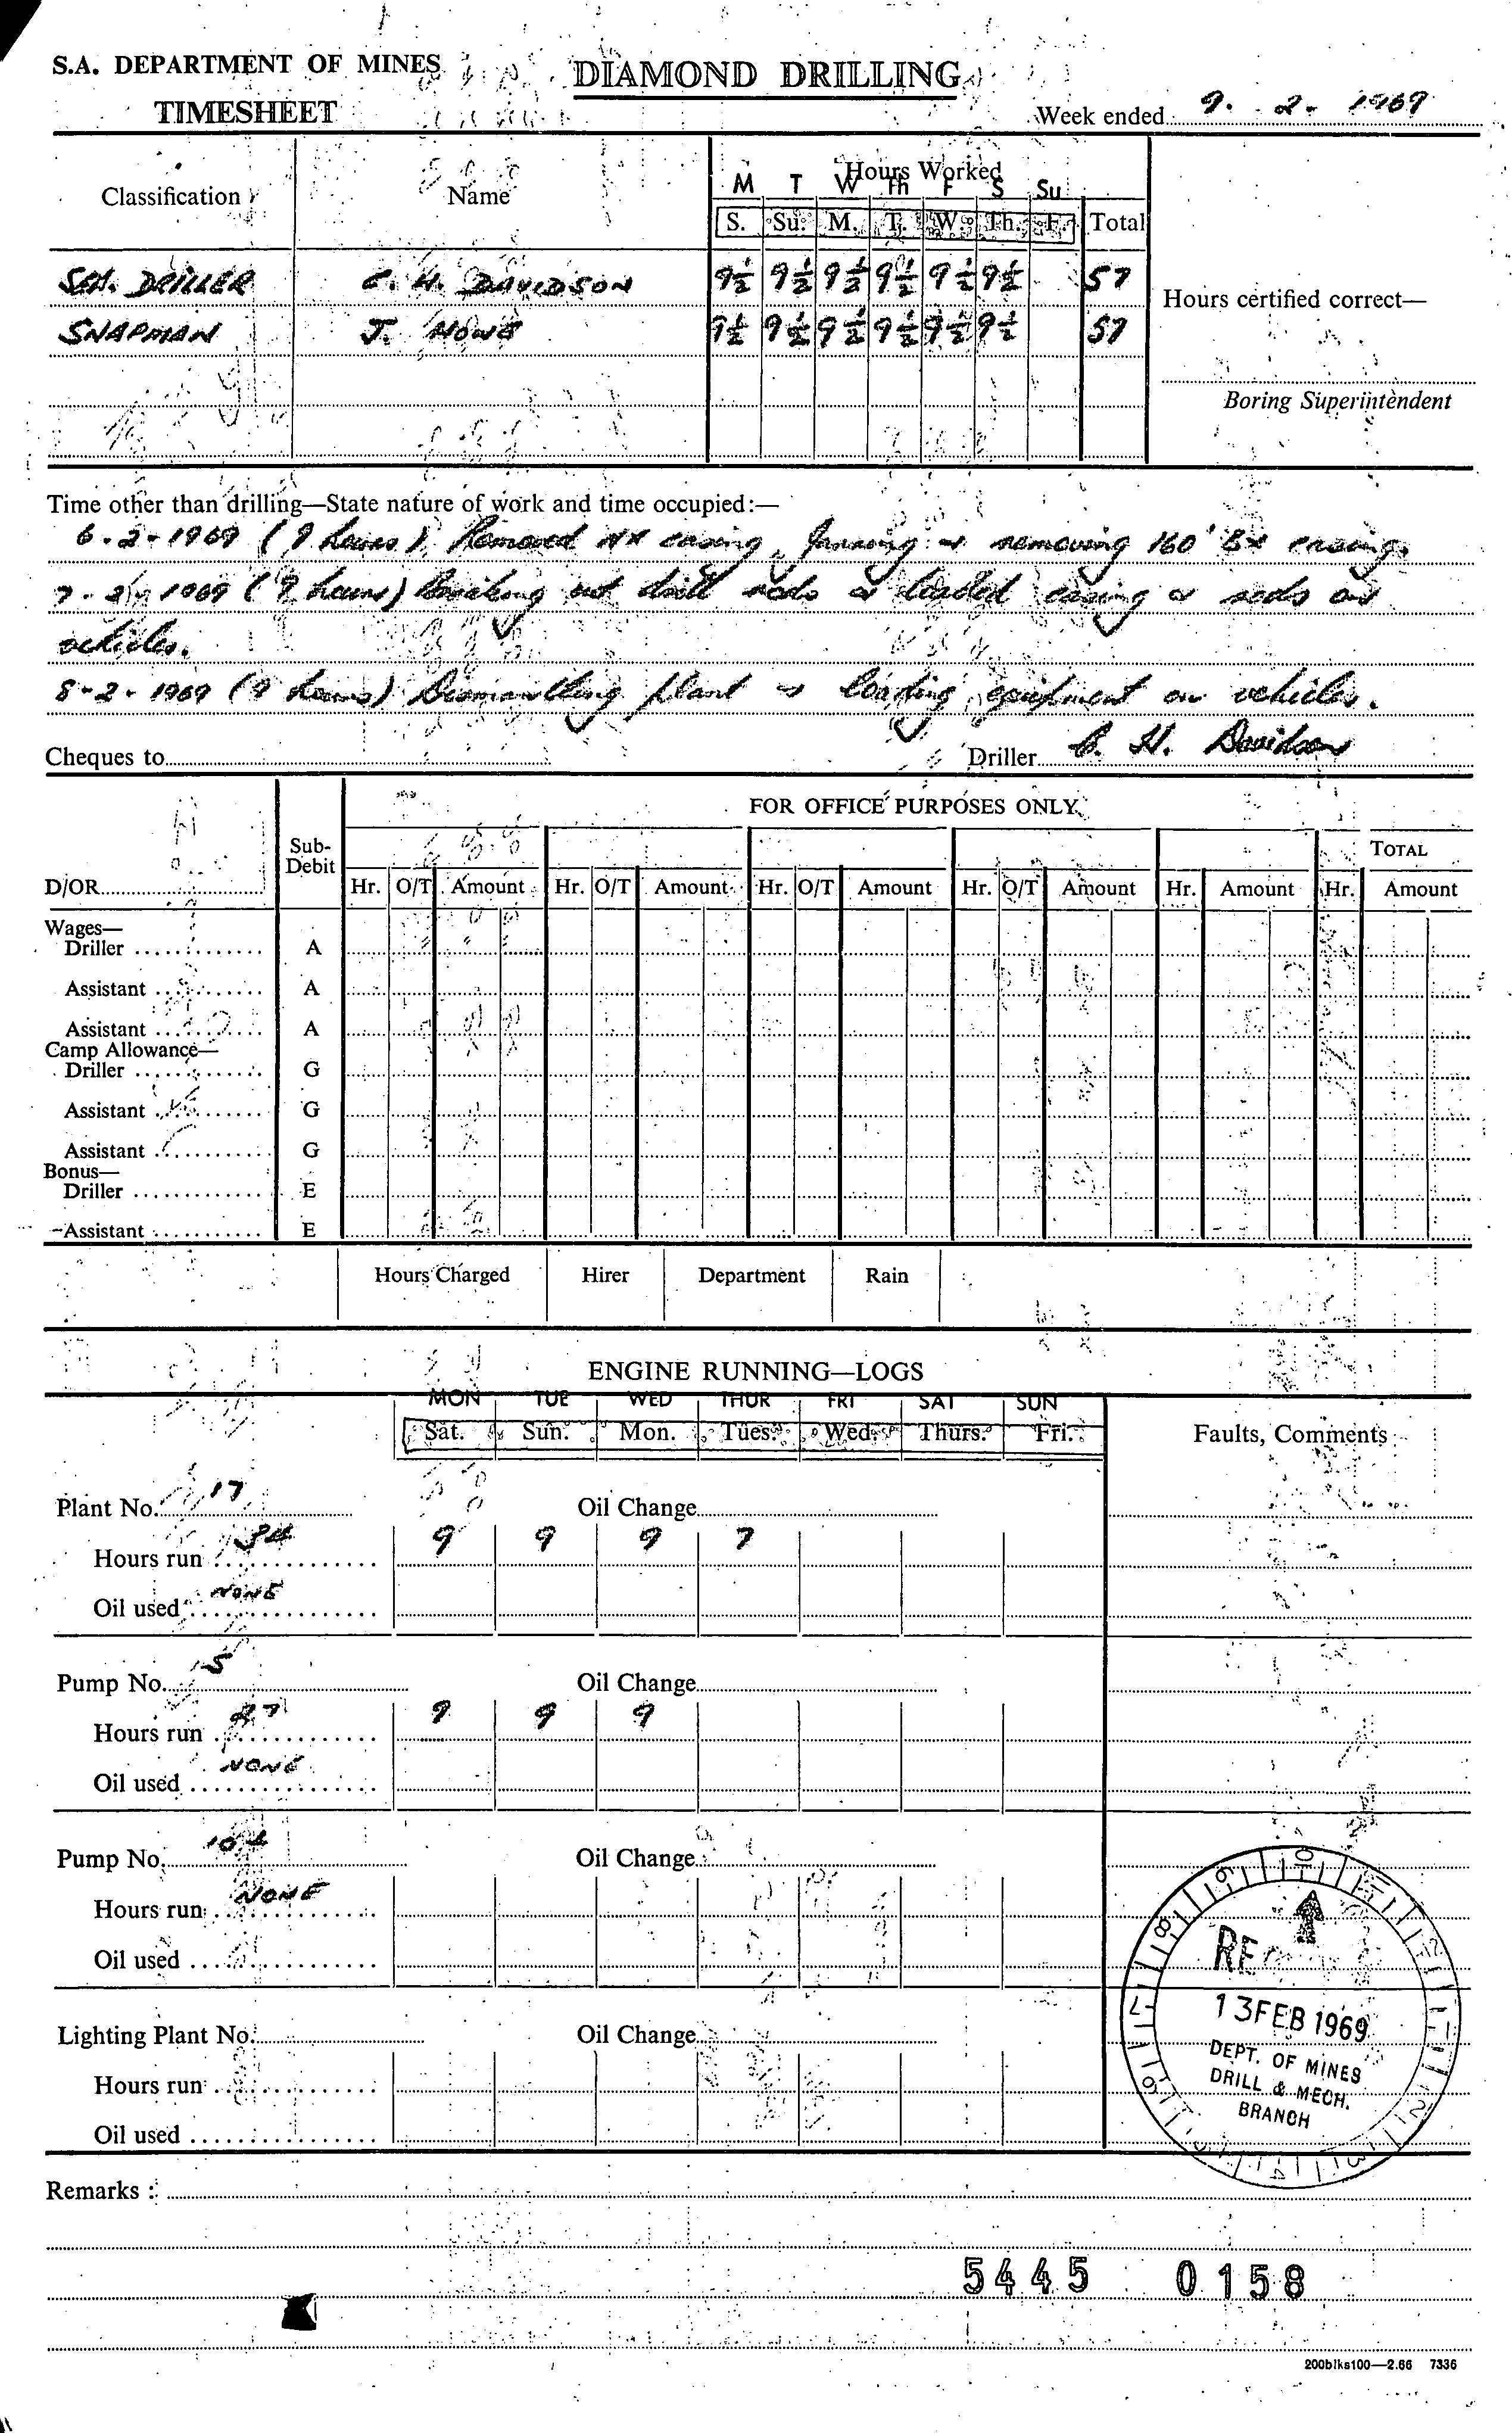 S.A. DEPARTMENT OF MINES
DIAMOND DRILLING
TIMESHEET
Week ended 9. 2. 1969
Classification Name Hours Worked
M T W Th F S Su
S. Su. M. T. W. Th. F. Total
DRILLER C. H. DAVIDSON 9½ 9½ 9½ 9½ 9½ 9½ 57
SNAPMAN J. HOWE 9½ 9½ 9½ 9½ 9½ 9½ 57
Hours certified correct—
Boring Superintendent
Time other than drilling—State nature of work and time occupied:—
6.2.1969 (9 hours) Removed NX casing, & removing 160' BX casing.
7.2.1969 (9 hours) Breaking out drill rods & loaded casing & rods on
vehicles.
8-2-1969 (9 hours) Dismantling plant & loading equipment on vehicles.
Cheques to
Driller C. H. Davidson
FOR OFFICE PURPOSES ONLY
D/OR Sub-Debit TOTAL
Hr. O/T Amount Hr. O/T Amount Hr. O/T Amount Hr. O/T Amount Hr. Amount Hr. Amount
Wages—
Driller A
Assistant A
Assistant A
Camp Allowance—
Driller G
Assistant G
Assistant G
Bonus—
Driller E
Assistant E
Hours Charged Hirer Department Rain
ENGINE RUNNING—LOGS
MON TUE WED THUR FRI SAT SUN
Sat. Sun. Mon. Tues. Wed. Thurs. Fri. Faults, Comments
Plant No. 17 Oil Change
Hours run 34 9 9 9 7
Oil used NONE
Pump No. 15 Oil Change
Hours run 27 9 9 9
Oil used NONE
Pump No. Oil Change
Hours run NONE
Oil used
Lighting Plant No. Oil Change
Hours run
Oil used
13 FEB 1969
DEPT. OF MINES
DRILL & MECH.
BRANCH
Remarks :
5445 0158
200blks100—2.66 7336